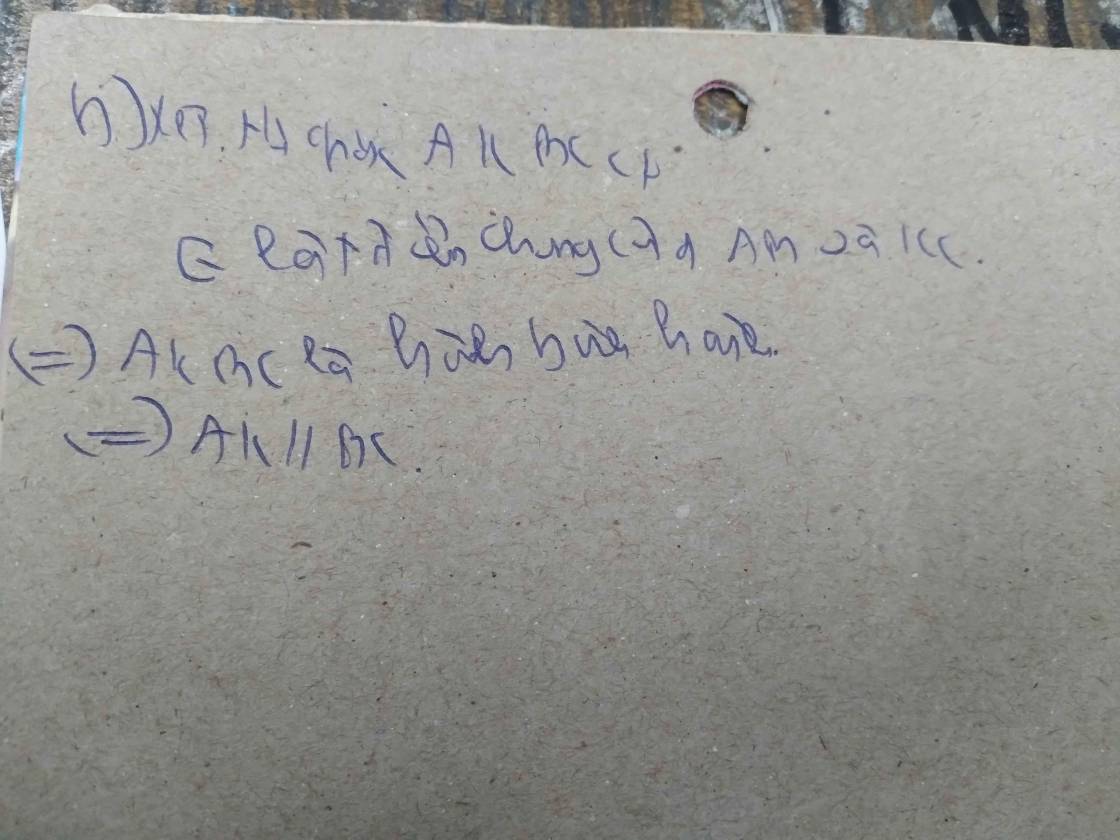 b) Xét tứ giác AKBC có
E là tđiểm chung của AB và KC.
(=) AKBC là hình bình hành.
(=) AK // BC.